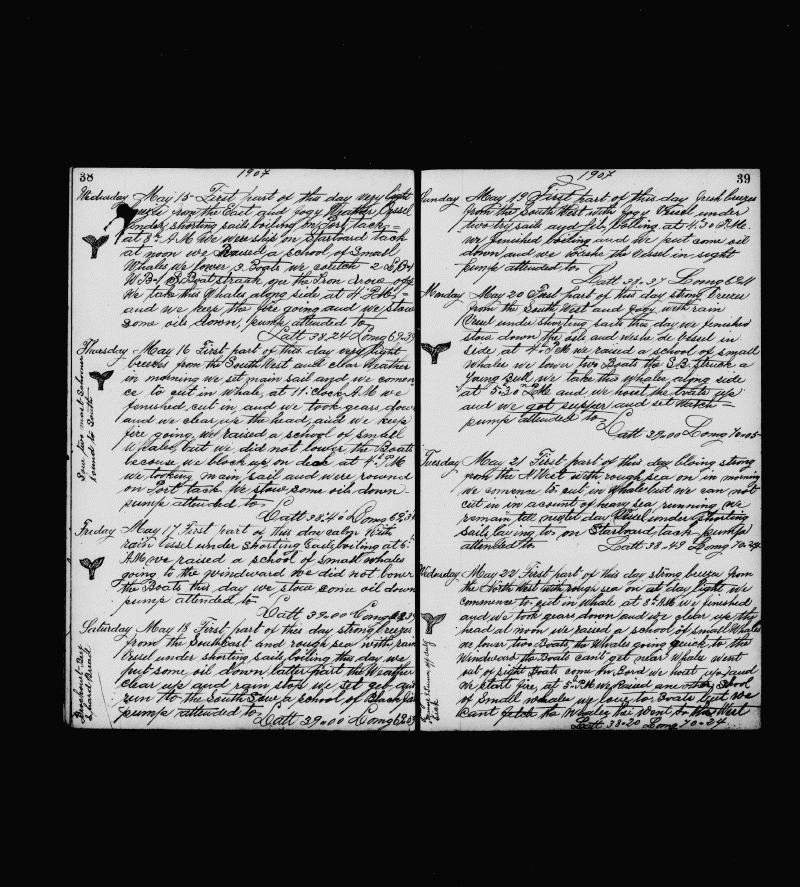 38
1907
Wednesday May 15 First part of this day very light
from the East and fogy Weather Vessel
under shorting sails boiling on Port tack =
at 8 A.M we were ship on Starboard tack
at noon we Raised a school of Small
Whales we lower 3 Boats we 2
W.B. Boat straak one the Iron
We take this Whales along side at 4 P.M.
and we keep the fire going and we stow
some oils down, pump attended to
Latt 38.24 Long 69.39
Thursday May 16 First part of this day very light
breezes from the SouthWest and clear Weather
in morning we set main sail and we comen
ce to cut in Whale, at 11 Clock A.M we
fenished cut in and we took gears down
and we clear up the head, and we keep
fire going, we raised a school of small
Whales, but we did not lower the Boats
because we block up on deck at 4 P.M
we main sail and were round
on Port tack We stow some oil down
pump attended to
Latt 38.40 Long 69.
Saw two mast Schooner
bound to South
Friday May 17 First part of this day calm With
rain Vessel under shorting Sails, boiling at 6
A.M we raised a school of small whales
going to the windward we did not lower
the Boats this day we stow some oil down
pump attended to
Latt 39.00 Long
Saturday May 18 First part of this day strong breezes
from the SouthEast and rough sea with rain
Vessel under shorting sails, boiling, this day we
put some oil down latter part the Weather
clear up and rain stop we set get
run to the South Saw a school of Black
pump attended to
Latt 39.00 Long 69.39
39
1907
Sunday May 19 First part of this day fresh breezes
from the South West with fogy Vesel under
two try sails and jib, boiling at 4.30 P.M.
we finished boiling and we put some oil
down and we washe the Vessel in sight
pump attended to
Latt 39.37 Long 69.41
Monday May 20 First part of this day strong breezes
from the South West and fogy with rain
Vessel under shorting sails this day we finished
stow down the oils and washe de Vessel in
side at 4 P.M we raised a school of small
Whales we lower two Boats the S.B. struck a
Young Bull we take this whales along side
at 5.30 P.M and we hoist the Boats up
and we got supper and set Watch =
pump attended to
Latt 39.00 Long 70.05
Tuesday May 21 First part of this day bloing strong
from the N.West with rough sea on in morning
we comence to cut in Whale but we can not
cut in in account of heavy sea running we
remain till nextes day Vessel under shorting
sails laving to, on Starboard tack pump
attended to Latt 38.49 Long 70.24
Wednesday May 22 First part of this day strong breeze from
the North West with rough sea on at day light, we
commence to cut in Whale at 8 A.M we finished
and we took gears down and we clear up the
head at noon we raised a school of small Whales
we lower two Boats, the Whales going quick, to the
Windward the Boats can't get near Whale went
out of sight Boats come on Bord we hoist up and
We start fire, at 5 P.M we Raised
of small whales we lower to Boats but we
cant fetch the Whales he went to the West
Latt 38.20 Long 70.24
sick